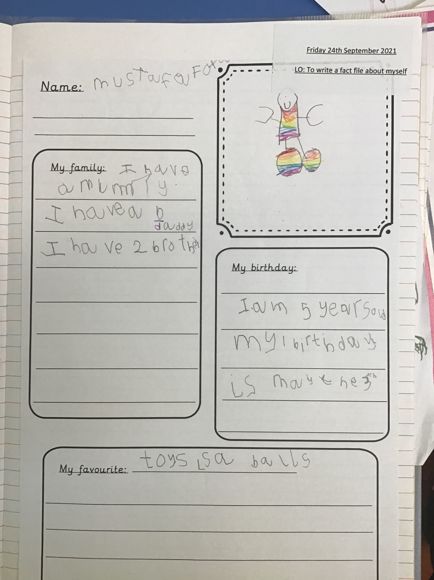 Friday 24th September 2021
LO: To write a fact file about myself
Name: mustafa
My family: I have
a mummy
I have a
daddy
I have 2 brother
My birthday:
I am 5 years old
my birthday
is may the
My favourite: toys is a balls